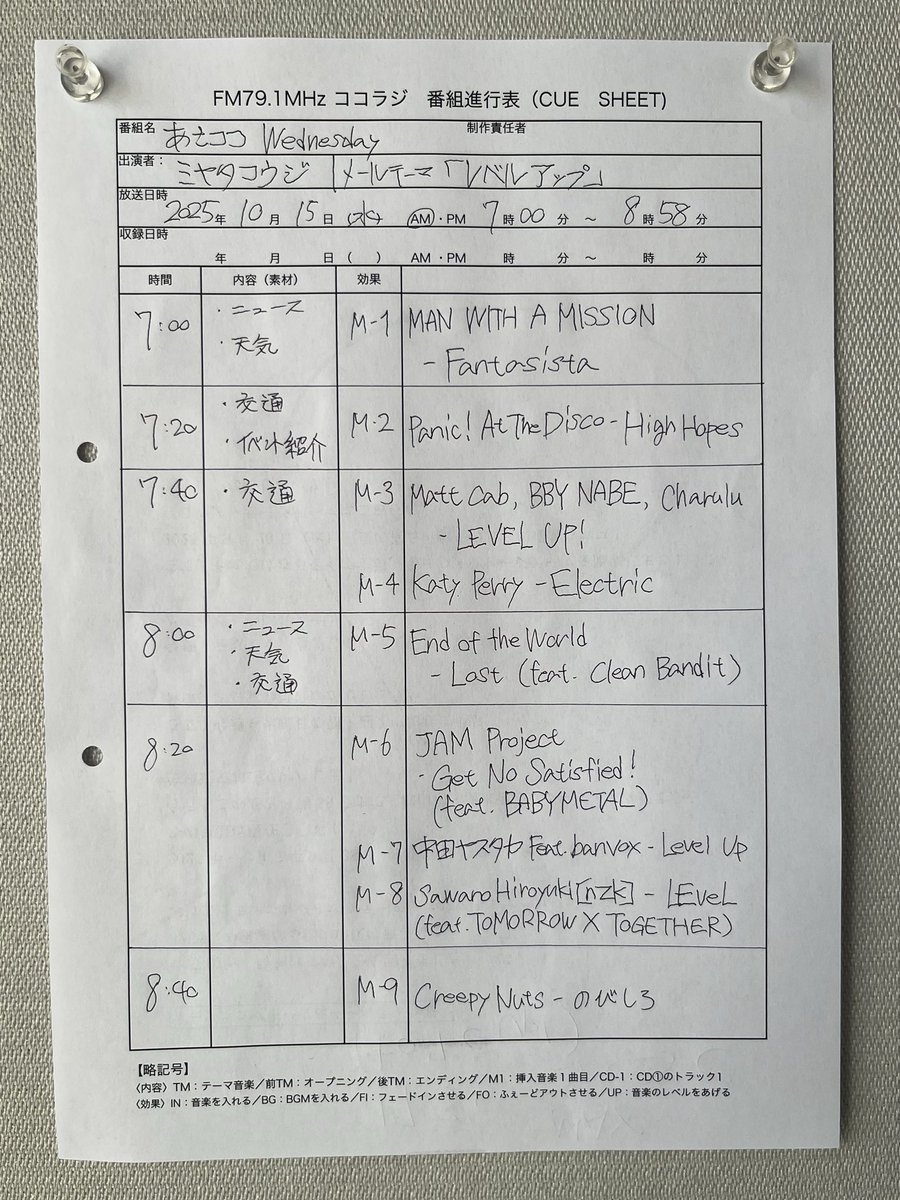 FM79.1MHz ココラジ 番組進行表（CUE SHEET)
番組名 あさココ Wednesday 制作責任者
出演者： ミヤタコウジ メールテーマ「レベルアップ」
放送日時 2025年 10月 15日 (水) AM・PM 7時00分 ～ 8時58分
収録日時 年 月 日（ ） AM・PM 時 分 ～ 時 分
時間 内容（素材） 効果
7:00 ・ニュース M-1 MAN WITH A MISSION
・天気 - Fantasista
7:20 ・交通 M-2 Panic! At The Disco - High Hopes
・イベント紹介
7:40 ・交通 M-3 Matt Cab, BBY NABE, Charulu
- LEVEL UP!
M-4 Katy Perry - Electric
8:00 ・ニュース M-5 End of the World
・天気 - Lost (feat. Clean Bandit)
・交通
8:20 M-6 JAM Project
- Get No Satisfied!
(feat. BABYMETAL)
M-7 中田ヤスタカ Feat. banvox - Level Up
M-8 SawanoHiroyuki[nZk] - LEveL
(feat. TOMORROW X TOGETHER)
8:40 M-9 Creepy Nuts - のびしろ
【略記号】
〈内容〉TM：テーマ音楽／前TM：オープニング／後TM：エンディング／M1：挿入音楽１曲目／CD-1：CD①のトラック1
〈効果〉IN：音楽を入れる／BG：BGMを入れる／FI：フェードインさせる／FO：ふぇーどアウトさせる／UP：音楽のレベルをあげる